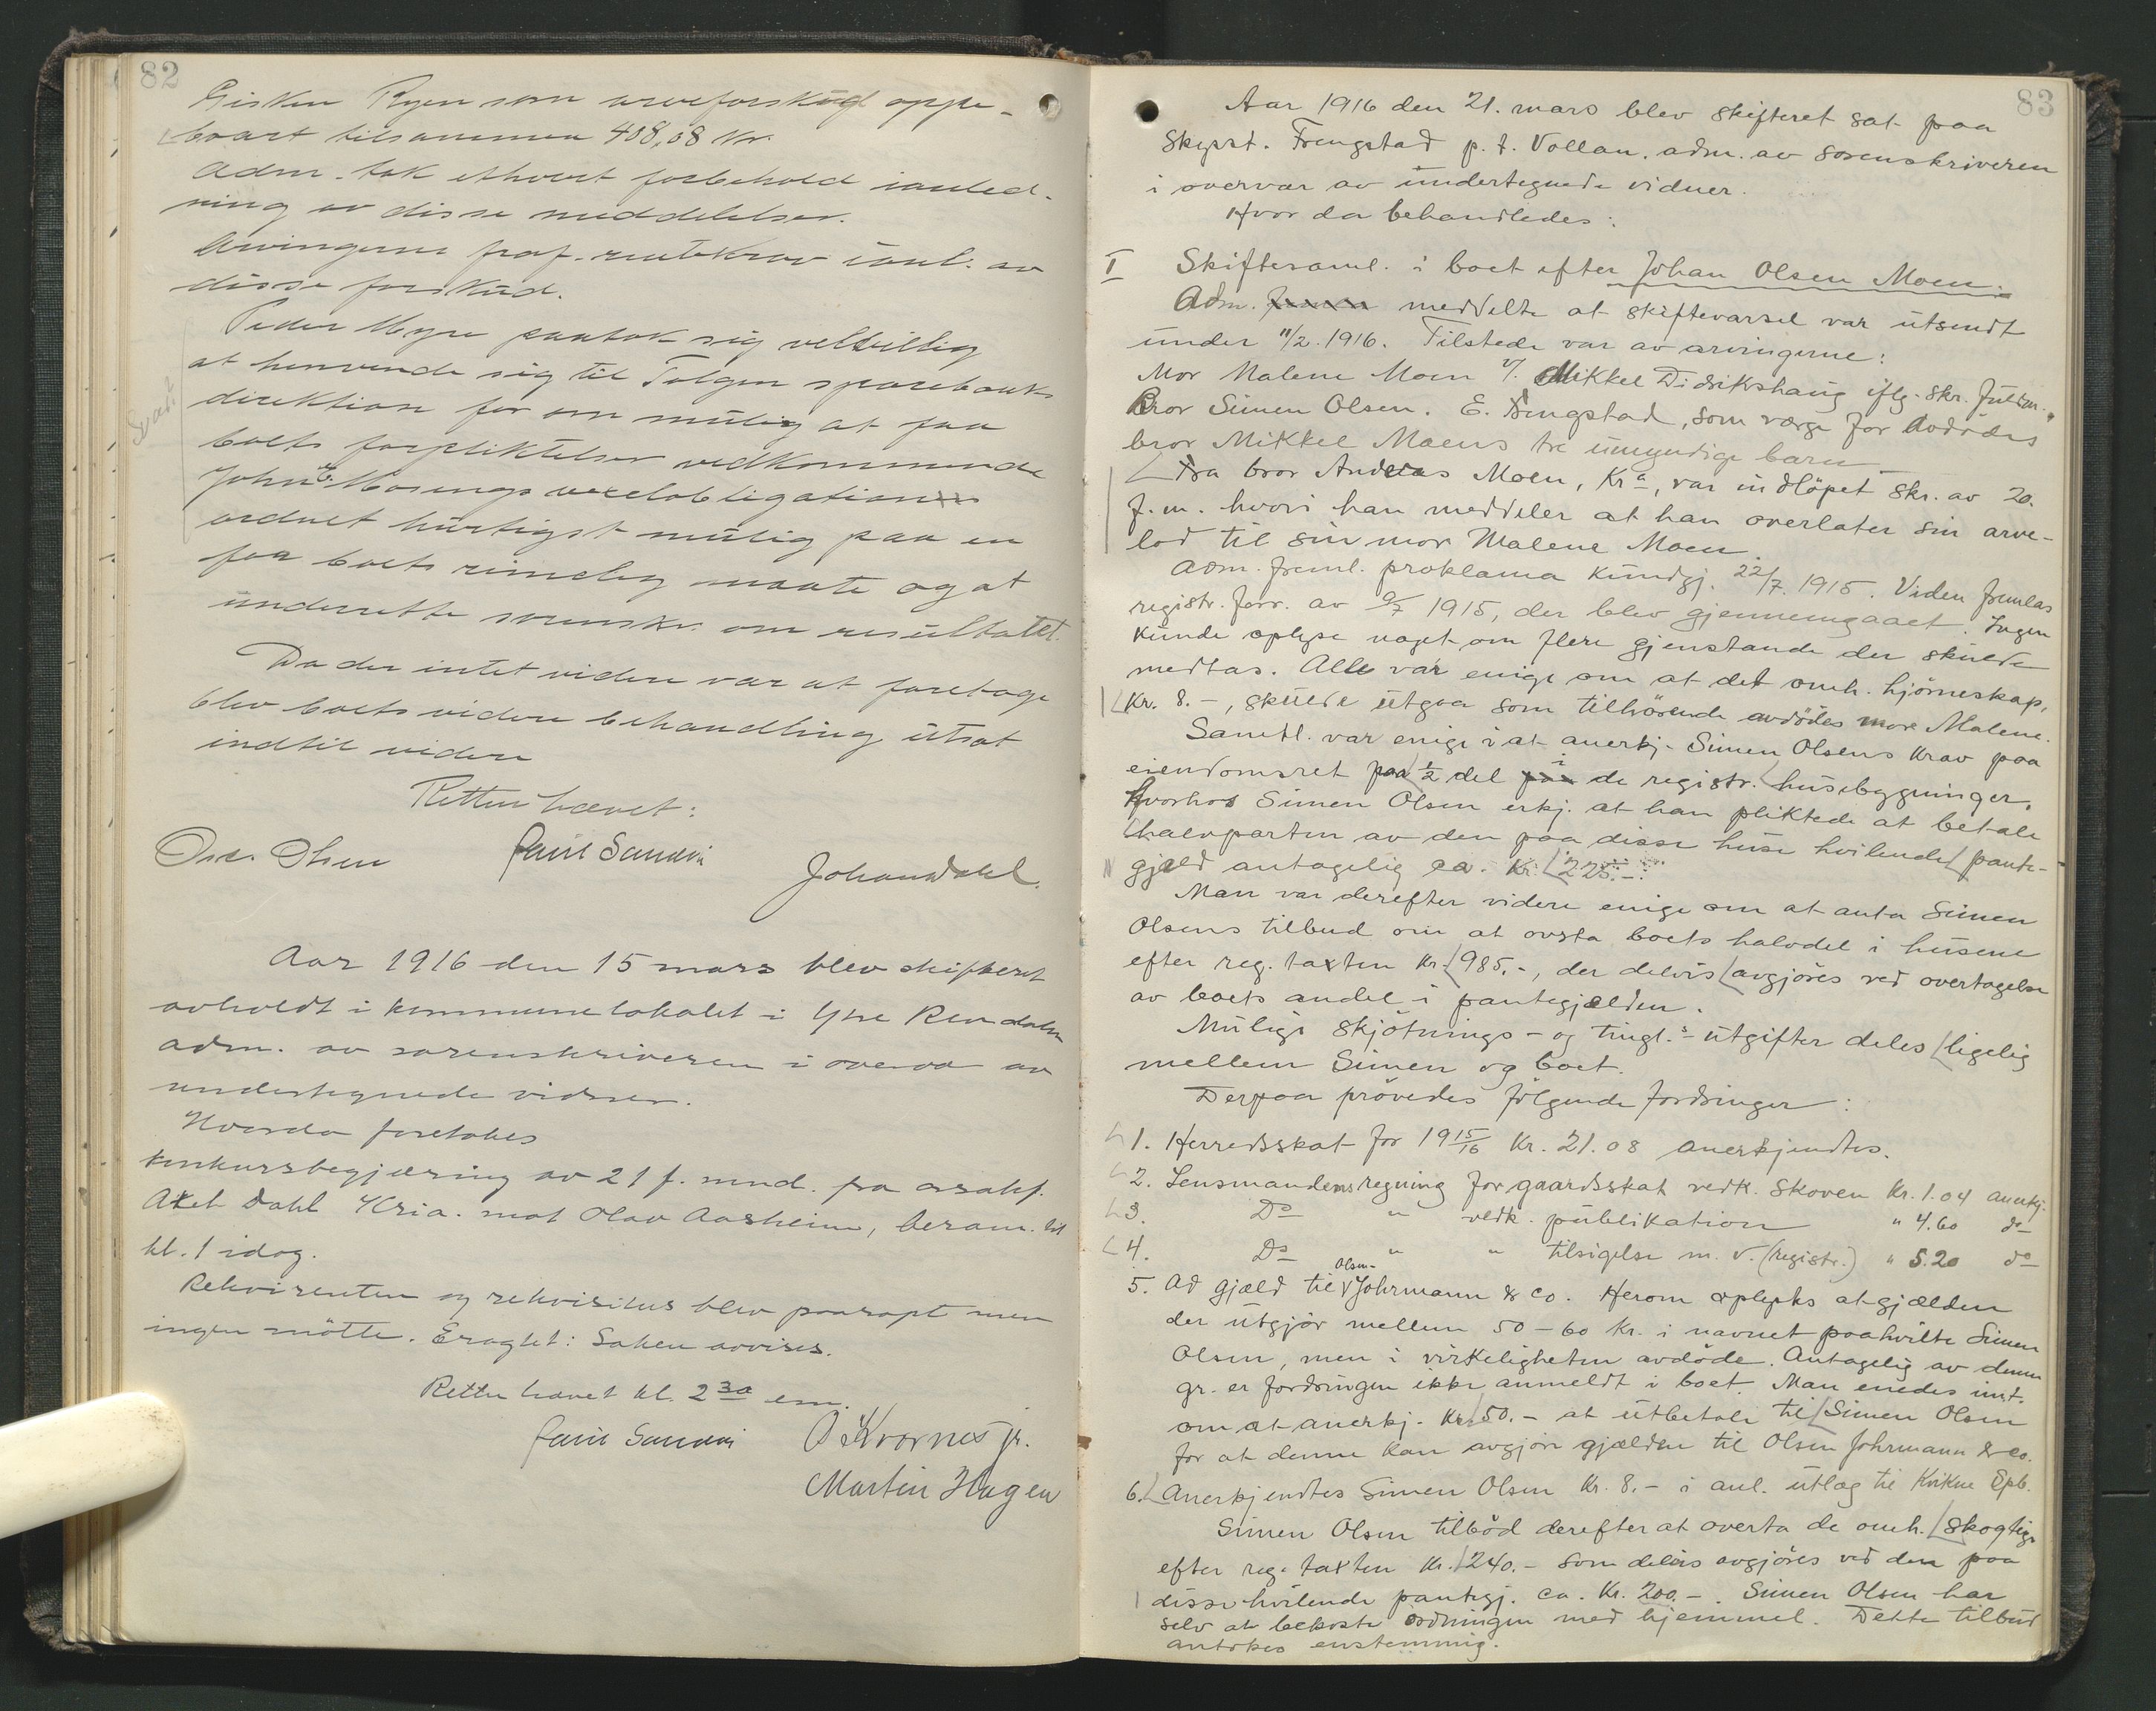 82
Gisken Ryen som arveforskud oppe-
baart tilsammen 408,08 Kr.
Adm. tok ethvert forbehold i anled-
ning av disse meddelelser.
Arvingerne fraf. rentekrav i anl. av
disse forskud.
Peder Myre paatok sig velvillig
at henvende sig til Tolgen sparebanks
direktion for om mulig at faa
boets forpliktelser vedkommende
John Mosengs vexelobligation
ordnet hurtigst mulig paa en
for boets rimelig maate og at
underrette sorenskr. om resultatet.
Svar
Da der intet videre var at foretage
blev boets videre behandling utsat
indtil videre
Retten hævet:
Ole Olsen Paul Sandvi Johan Dahl.
Aar 1916 den 15 mars blev skifteret
avholdt i kommunelokalet i Ytre Rendalen
adm. av sorenskriveren i overvær av
undertegnede vidner.
Hvorda foretokes
Konkursbegjæring av 21 f. mnd. fra orsakf.
Axel Dahl Kria. mot Olav Aasheim, beram. til
kl. 1 idag.
Rekvirenten og rekvisitus blev paaropt men
ingen mötte. Eragtet: Saken avvises.
Retten hævet kl. 2 30 em.
Paul Sandvi O. Kvornes jr.
Martin Hagen
83
Aar 1916 den 21. mars blev skifteret sat paa
Skysst. Frengstad p. t. Vollan, adm. av sorenskriveren
i overvær av undertegnede vidner.
Hvor da behandledes:
I Skiftesaml. i boet efter Johan Olsen Moen.
Adm. meddelte at skiftevarsel var utsendt
under 11/2. 1916. Tilstede var av arvingerne:
Mor Malene Moen v/. Mikkel Didrikshaug iflg. skr. fuldm.
Bror Simen Olsen. E. Frengstad, som verge for avdödes
bror Mikkel Moens tre umyndige barn
Fra bror Andreas Moen, Kra, var indlöpet skr. av 20.
f. m. hvori han meddeler at han overlater sin arve-
lod til sin mor Malene Moen.
Adm. freml. proklama kundgj. 22/7. 1915. Viden fremlas
registr. forr. av 9/7 1915, der blev gjennemgaaet. Ingen
kunde oplyse noget om flere gjenstande der skulde
medtas. Alle var enige om at det omh. hjörneskap,
Kr. 8.-, skulde utgaa som tilhörende avdödes mor Malene.
Samtl. var enige i at anerkj. Simen Olsens krav paa
eiendomsret paa 1/2 del i de registr. husebygninger,
hvorhos Simen Olsen erkj. at han pliktede at betale
halvparten av den paa disse huse hvilende pante-
gjæld antagelig ca. Kr. 225.-.
Man var derefter videre enige om at anta Simen
Olsens tilbud om at overta boets halvdel i husene
efter reg. taxten Kr. 985.-, der delvis avgjöres ved overtagelse
av boets andel i pantegjælden.
Mulige skjötnings- og tingl.s-utgifter deles ligelig
mellem Simen og boet.
Derpaa prövedes fölgende fordringer:
1. Herredsskat for 19 15/16 Kr. 21.08 anerkjendtes.
2. Lensmandens regning for gaardsskat vedk. skoven Kr. 1.04 anerkj.
3. Do " vedk. publikation " 4.60 do
4. Do " " tilsigelse m. v. (registr.) " 5.20 do
5. Ad gjæld til Olsen Johrmann & Co. Herom oplystes at gjælden
der utgjör mellem 50 - 60 kr. i navnet paahvilte Simen
Olsen, men i virkeligheten avdöde. Antagelig av denne
gr. er fordringen ikke anmeldt i boet. Man enedes imt.
om at anerkj. Kr. 50.- at utbetale til Simen Olsen
for at denne kan avgjöre gjælden til Olsen Johrmann & co.
6. Anerkjendtes Simen Olsen Kr. 8.- i anl. utlæg til Kvikne Spb.
Simen Olsen tilböd derefter at overta de omh. skogteiger
efter reg. taxten Kr. 240.- som delvis avgjöres ved den paa
disse hvilende pantegj. ca. Kr. 200.-. Simen Olsen har
selv at bekoste ordningen med hjemmel. Dette tilbud
antokes enstemmig.